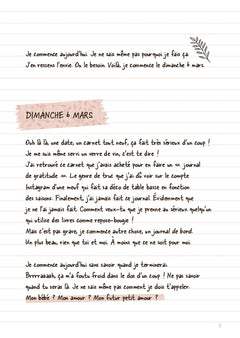 Je commence aujourd'hui. Je ne sais même pas pourquoi je fais ça.
J'en ressens l'envie. Ou le besoin. Voilà, je commence le dimanche 6 mars.
DIMANCHE 6 MARS
Ouh là là, une date, un carnet tout neuf, ça fait très sérieux d'un coup !
Je me suis même servi un verre de vin, c'est te dire !
J'ai retrouvé ce carnet que j'avais acheté pour en faire un « journal
de gratitude ». Le genre de truc que j'ai dû voir sur le compte
Instagram d'une meuf qui fait sa déco de table basse en fonction
des saisons. Finalement, j'ai jamais fait ce journal. Évidemment que
je ne l'ai jamais fait. Comment veux-tu que je prenne au sérieux quelqu'un
qui utilise des livres comme repose-bougie !
Mais c'est pas grave, je commence autre chose, un journal de bord.
Un plus beau, rien que toi et moi. À moins que ce ne soit pour moi.
Je commence aujourd'hui sans savoir quand je terminerai.
Brrrraaaah, ça m'a foutu froid dans le dos d'un coup ! Ne pas savoir
quand tu seras là. Je ne sais même pas comment je dois t'appeler.
Mon bébé ? Mon amour ? Mon futur petit amour ?